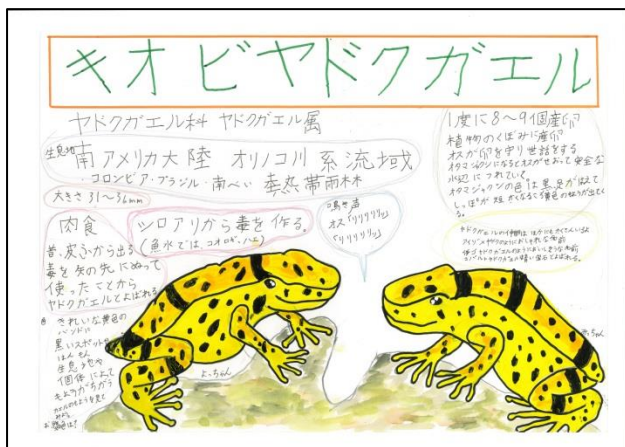 キオビヤドクガエル
ヤドクガエル科 ヤドクガエル属
生息地
南アメリカ大陸 オリノコ川系流域
・コロンビア・ブラジル・南べい 熱帯雨林
大きさ 31〜36mm
肉食
シロアリから毒を作る。
(魚水では、コオロギ、ハエ)
昔、皮ふから出る
毒を矢の先にぬって
使ったことから
ヤドクガエルとよばれる
鳴き声
オス「リリリリッ」
「リリリリッ」
1度に8〜9個産卵
植物のくぼみに産卵
オスが卵を守り世話をする
オタマジャクシになるとオスがせおって安全な
水辺につれていく。
オタマジャクシの色は黒、足が生えて
しっぽが短くなるころ黄色のもようが出てく
る。
きれいな黄色の
バンドに
黒いスポットも
生息地や
個体によって
もようがちがう
よっちゃん